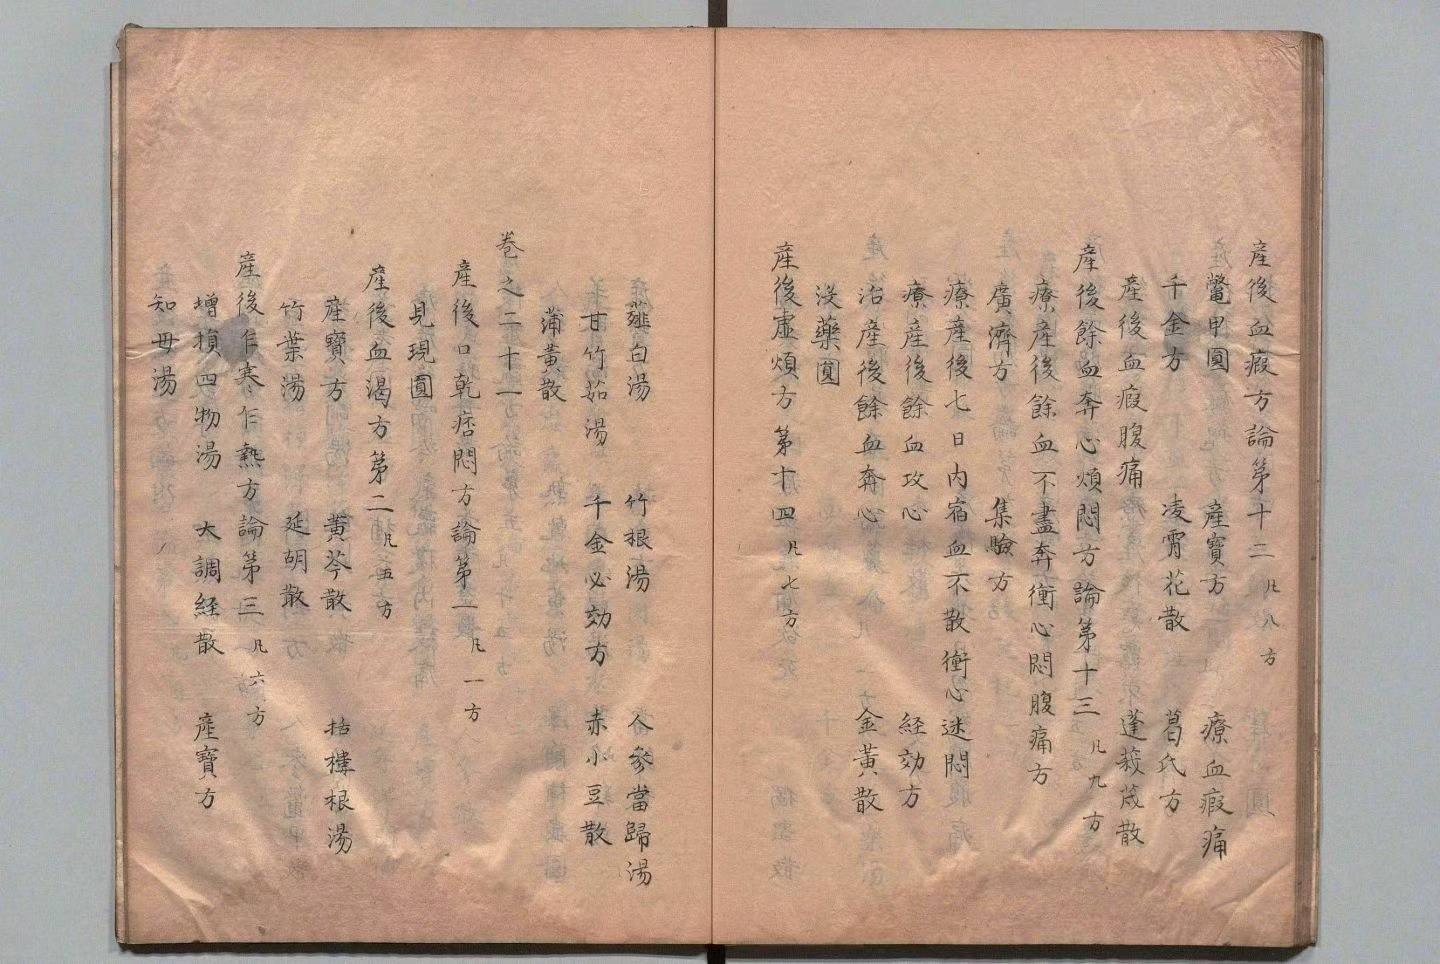 産後血瘕方論第十二 凡八方
鼈甲圓 産寶方 療血瘕痛
千金方 凌霄花散 葛氏方
産後血瘕腹痛 蓬莪茂散
産後餘血奔心煩悶方論第十三 凡九方
療産後餘血不盡奔衝心悶腹痛方
廣濟方 集驗方
療産後七日内宿血不散衝心迷悶
療産後餘血攻心 経効方
治産後餘血奔心 金黄散
没藥圓
産後虚煩方第十四 凡七方
薤白湯 竹根湯 人參當歸湯
甘竹茹湯 千金必効方 赤小豆散
蒲黄散
巻之二十一
産後口乾痞悶方論第一 凡一方
見現圓
産後血渇方第二 凡五方
産寶方 黄芩散 括樓根湯
竹葉湯 延胡散
産後乍寒乍熱方論第三 凡六方
増損四物湯 大調経散 産寶方
知母湯